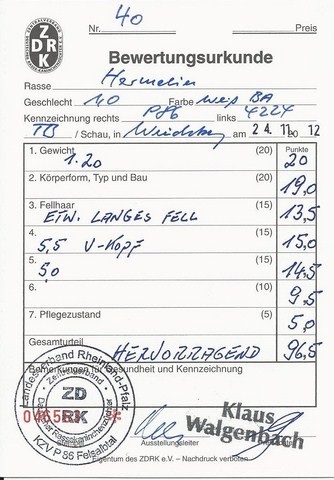 ZDRK
Nr. 40 Preis
Bewertungsurkunde
Rasse Hermelin
Geschlecht 1,0 Farbe weiß BA
Kennzeichnung rechts P86 links 4224
TB / Schau, in am 24. 11. 12
1. Gewicht (20) Punkte
1.20 20
2. Körperform, Typ und Bau (20) 19,0
3. Fellhaar (15) 13,5
ETW. LANGES FELL
4. (15) 15,0
5,5 V-KOPF
5. (15) 14,5
5,0
6. (10) 9,5
7. Pflegezustand (5) 5,0
Gesamturteil HERVORRAGEND 96,5
Bemerkungen für Gesundheit und Kennzeichnung
Landesverband Rheinland-Pfalz
Zentralverband
ZD
RK
Deutscher Rassekaninchenzüchter
KZV P 86 Felsalbtal
Klaus
Walgenbach
Ausstellungsleiter
Eigentum des ZDRK e.V. – Nachdruck verboten